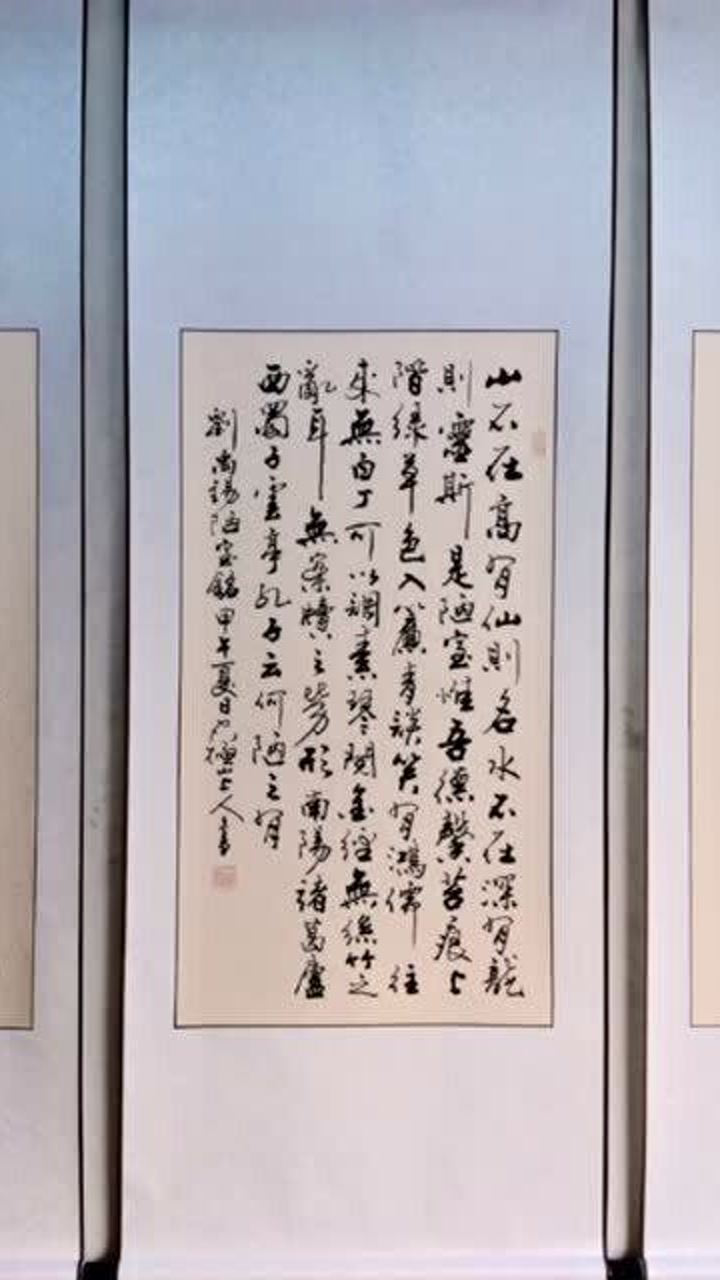 山不在高有仙則名水不在深有龍
則靈斯是陋室惟吾德馨苔痕上
階綠草色入簾青談笑有鴻儒往
來無白丁可以調素琴閱金經無絲竹之
亂耳無案牘之勞形南陽諸葛廬
西蜀子雲亭孔子云何陋之有
劉禹錫陋室銘甲午夏日山上人書